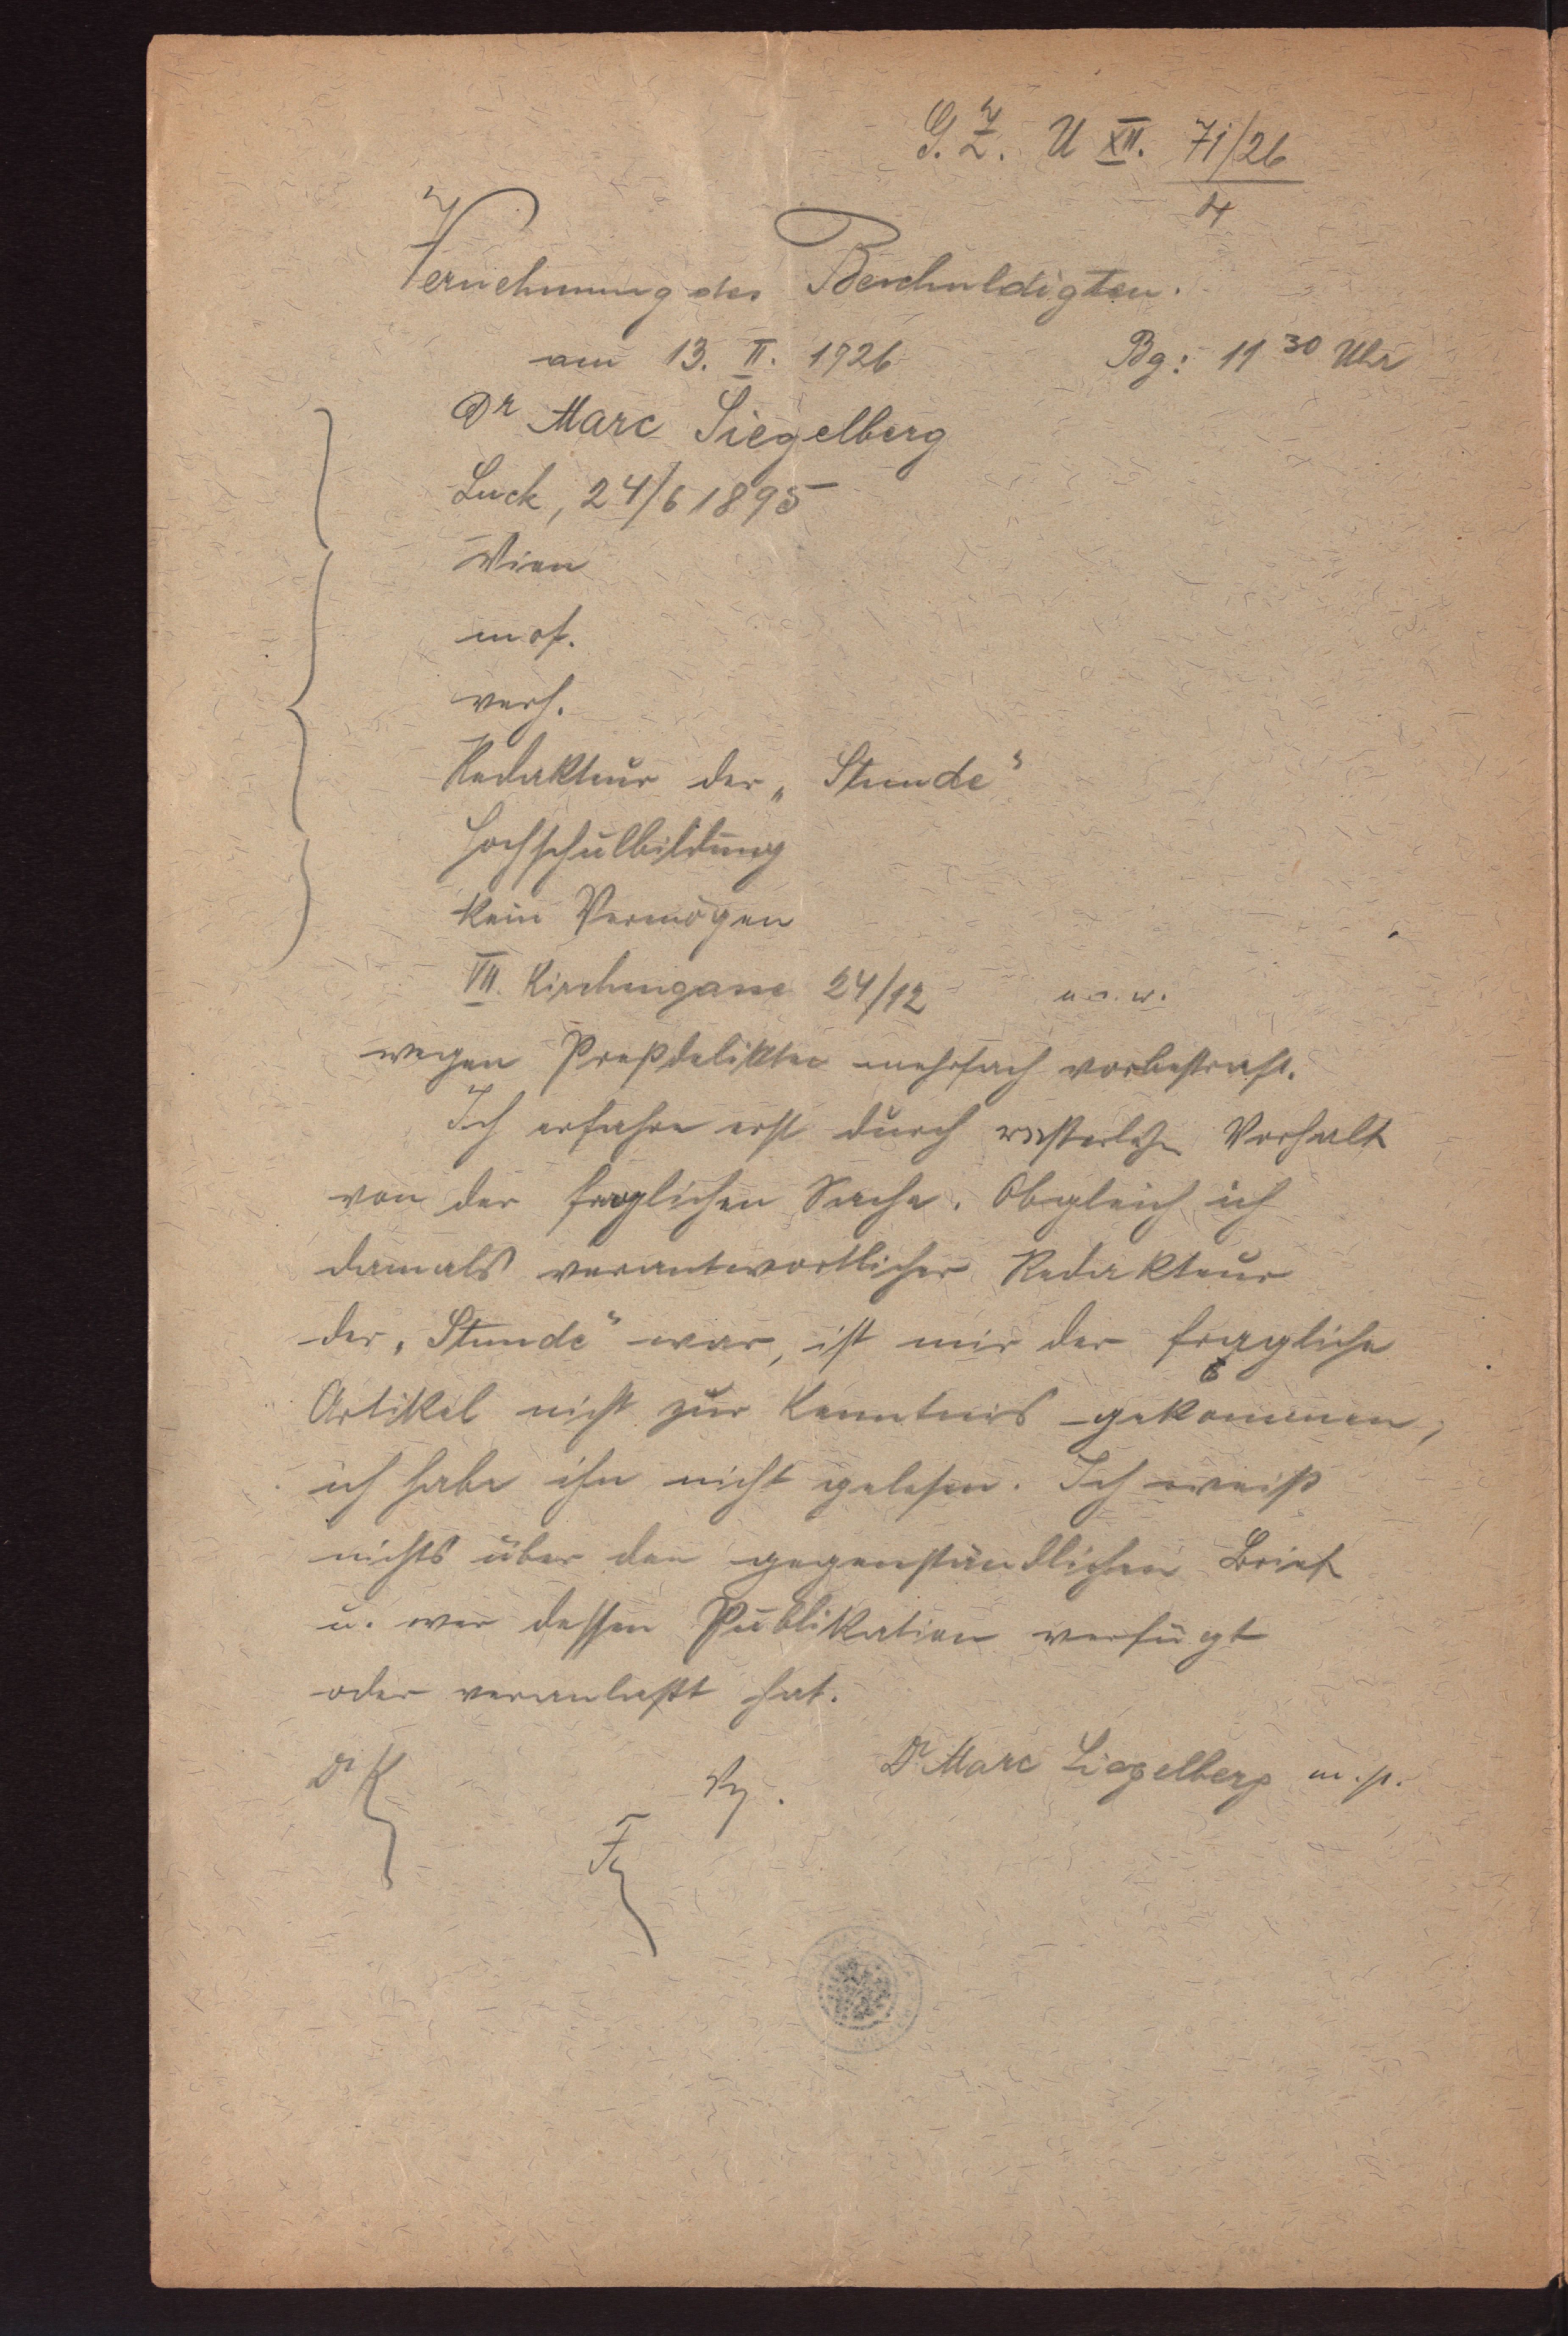 G. Z. U XII. 71/26
4
Vernehmung des Beschuldigten.
am 13. II. 1926 Bg: 11 30 Uhr
Dr Marc Siegelberg
Luck, 24/6 1895
Wien
mos.
verh.
Redakteur der „Stunde"
Hochschulbildung
kein Vermögen
VII. Kirchengasse 24/12 u. s. w.
wegen Preßdelikten mehrfach vorbestraft.
Ich erfahre erst durch Vorhalt
von der fraglichen Sache. Obgleich ich
damals verantwortlicher Redakteur
der „Stunde" war, ist mir der fragliche
Artikel nicht zur Kenntnis gekommen,
ich habe ihn nicht gelesen. Ich weiß
nichts über den gegenständlichen Brief
u. wer dessen Publikation verfügt
oder veranlaßt hat.
Dr. Marc Siegelberg m. p.